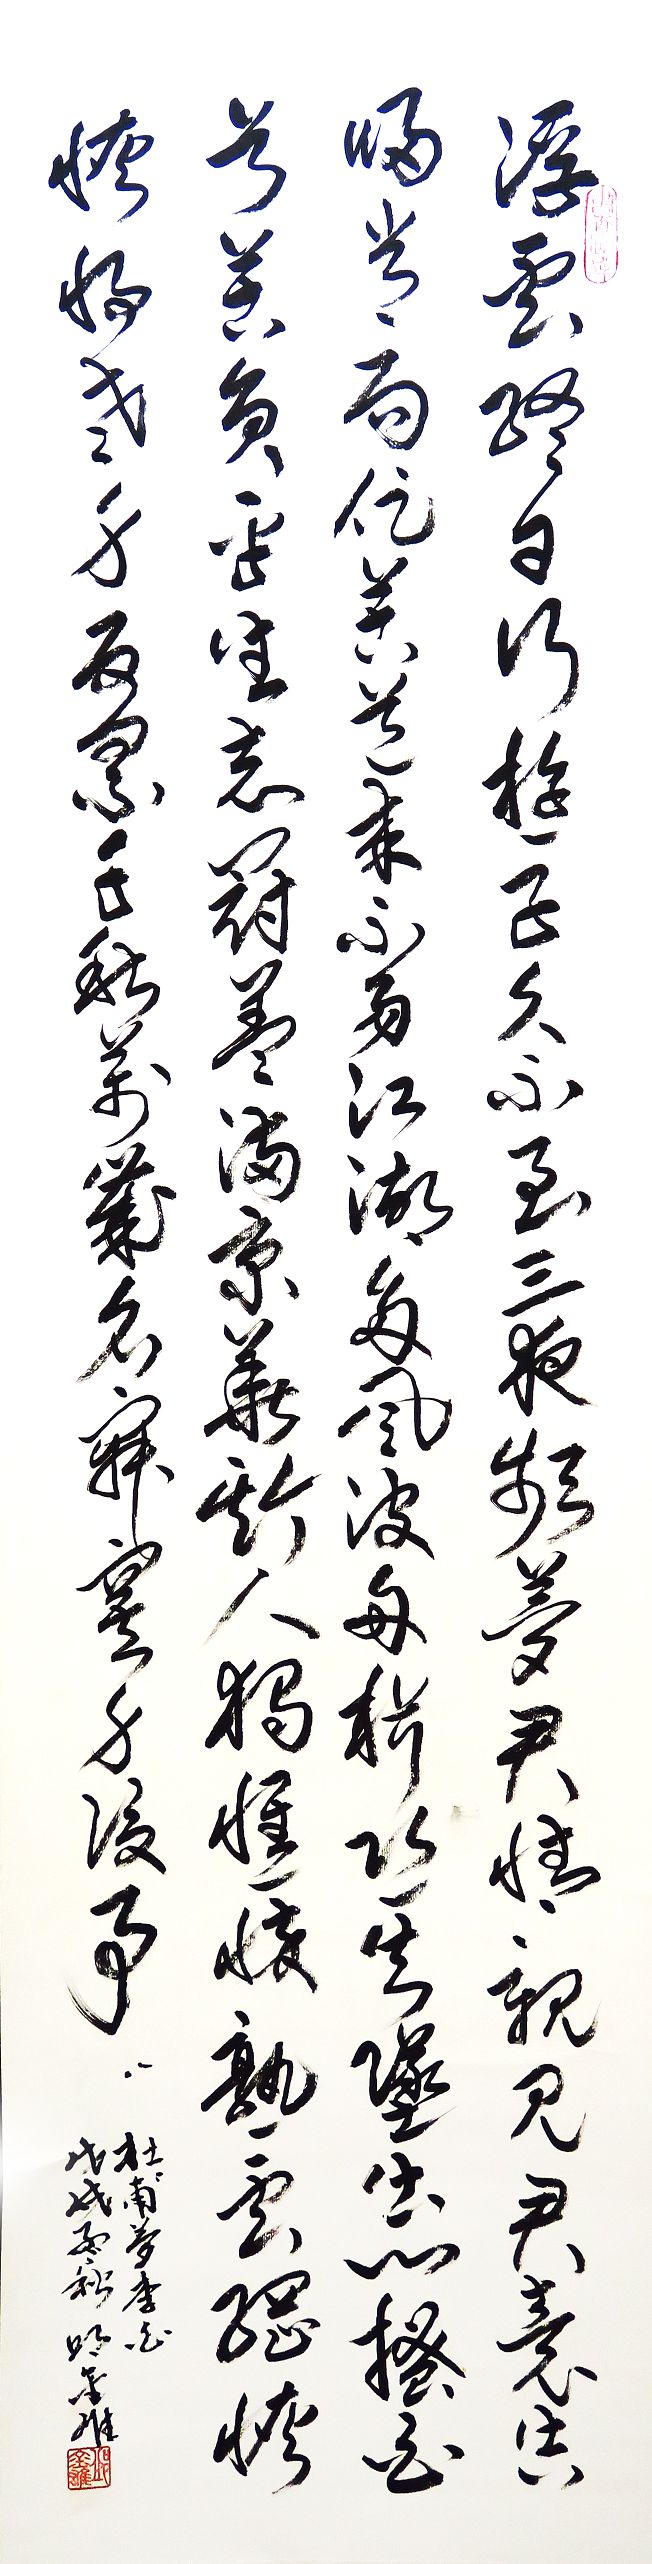 浮雲終日行遊子久不至三夜頻夢君情親見君意告
歸常局促苦道來不易江湖多風波舟楫恐失墜出門搔白
首若負平生志冠蓋滿京華斯人獨憔悴孰云網恢
恢將老身反累千秋萬歲名寂寞身後事
杜甫夢李白
戊戌孟秋